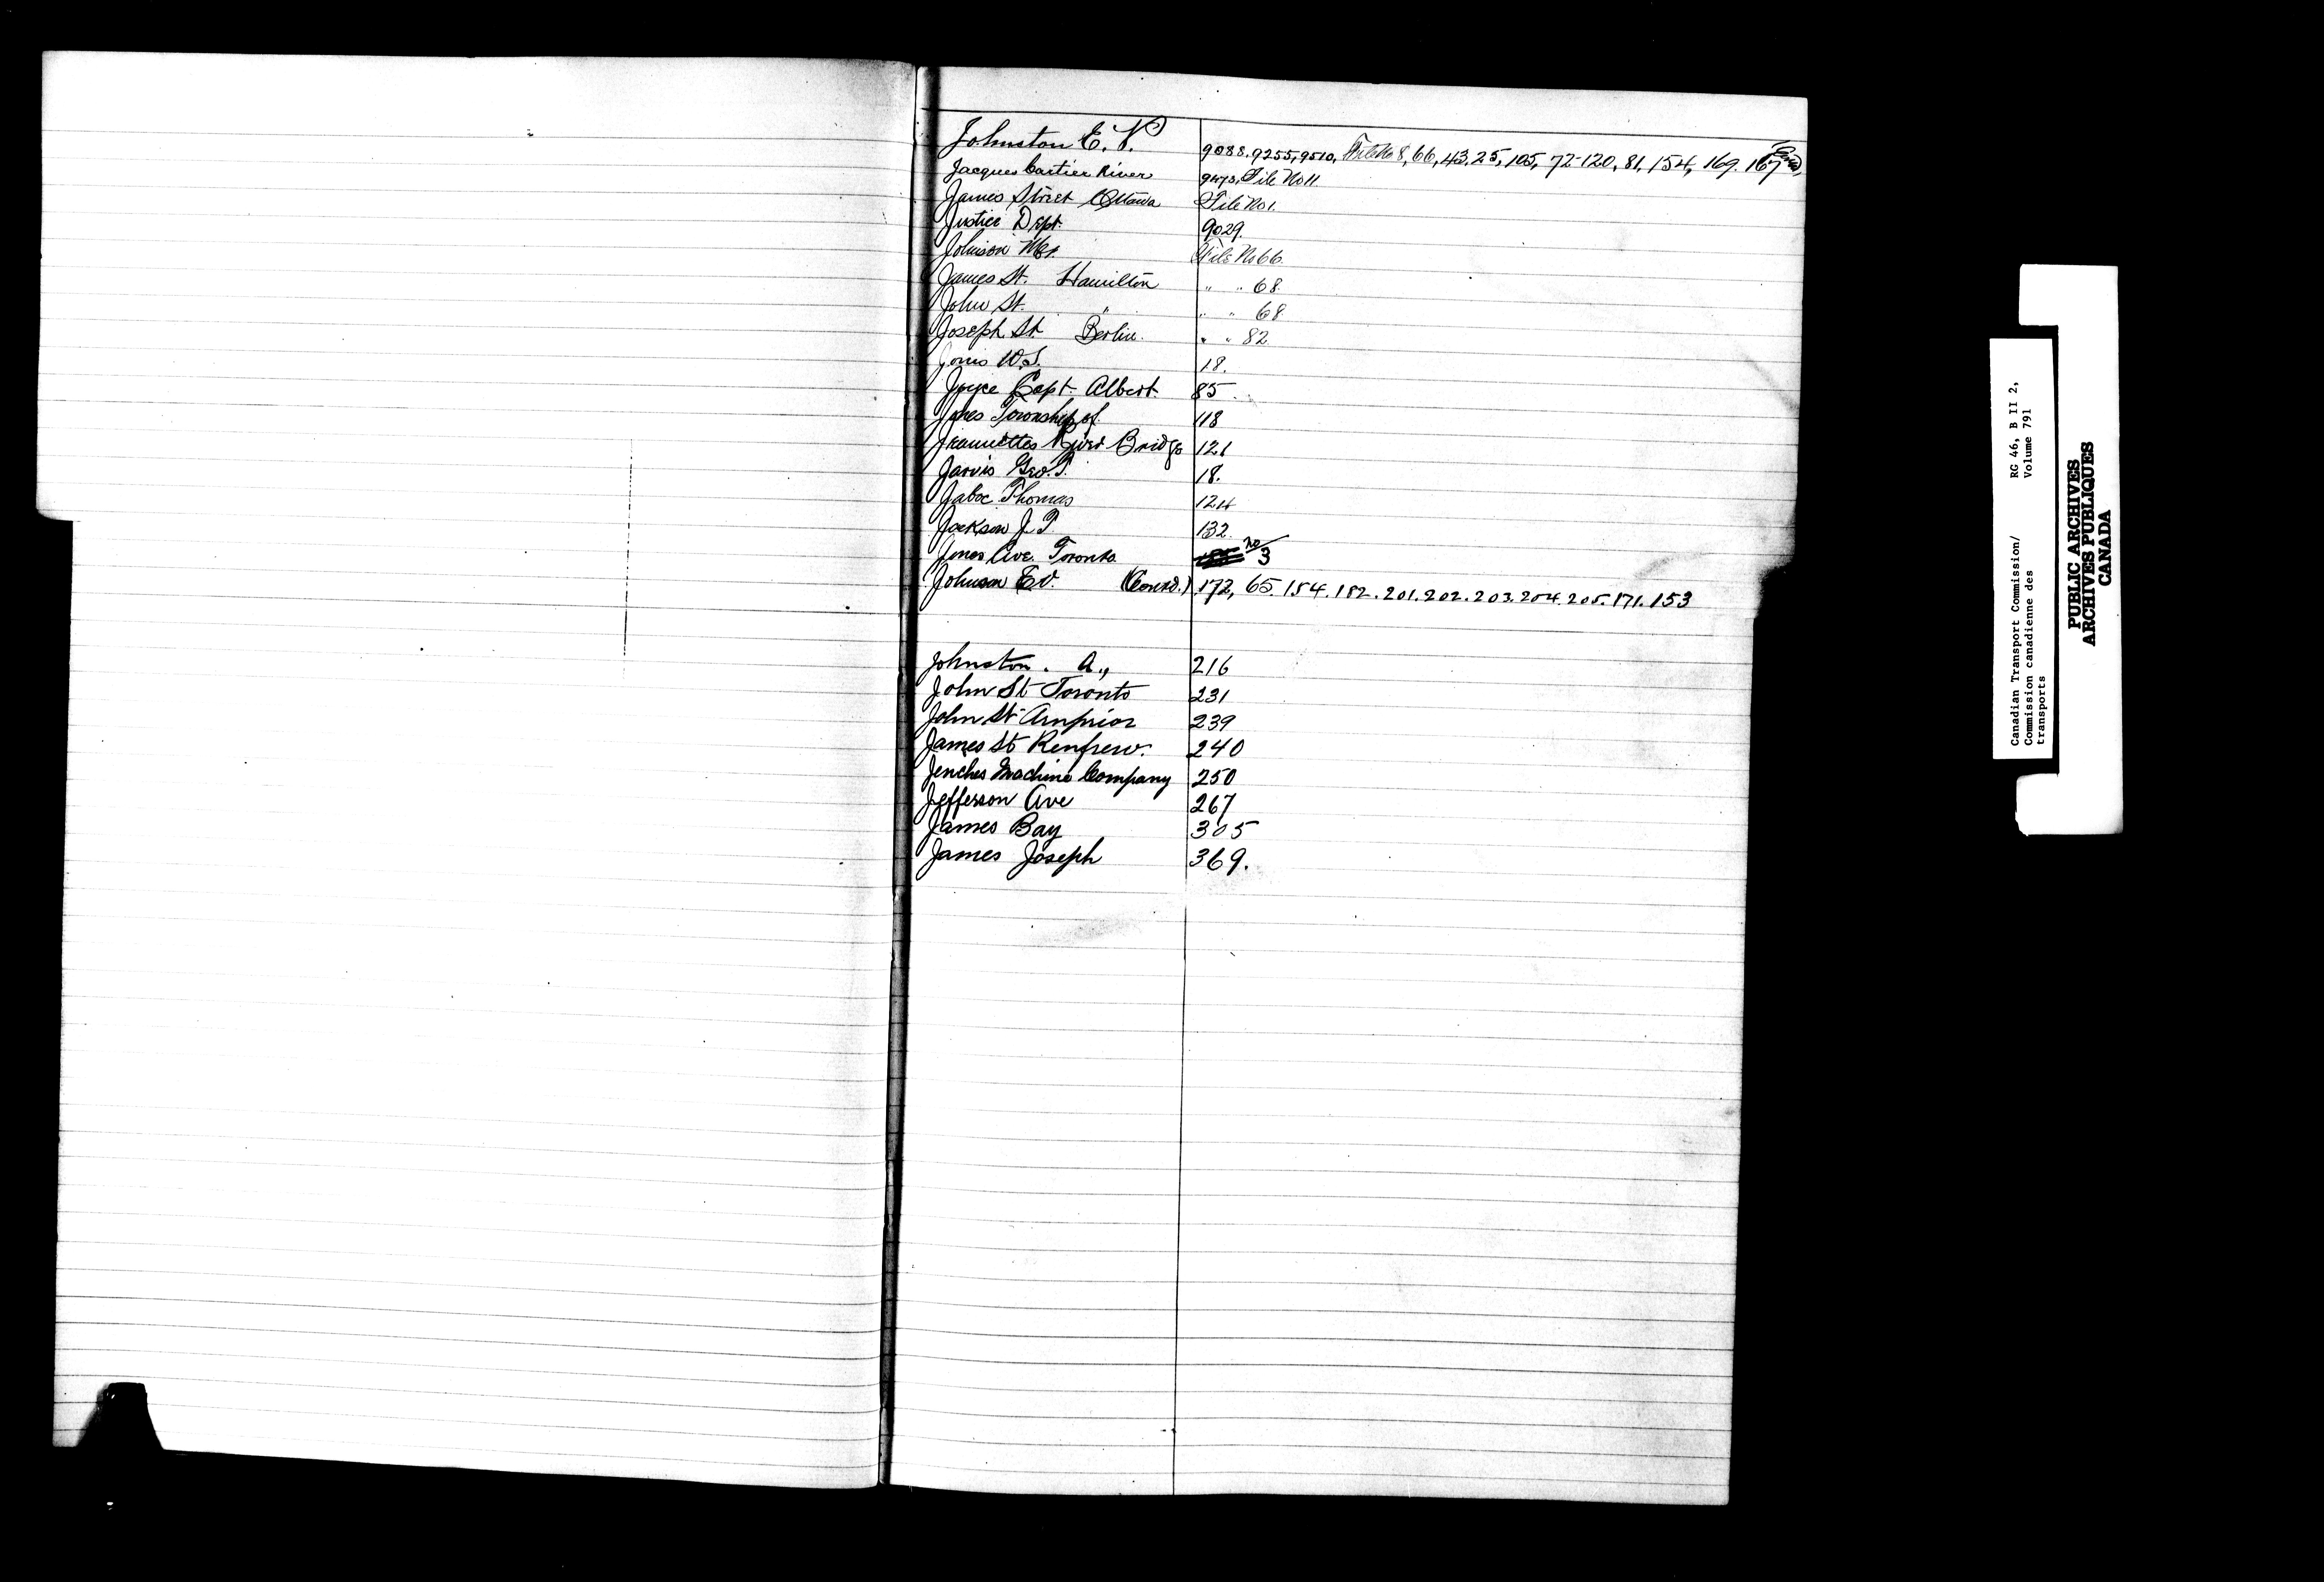 Johnston E. V. 9088. 9255, 9510, File No 8, 66, 43, 25, 105, 72-120, 81, 154, 169. 167
Jacques Cartier River 9473, File No 11.
James Street Ottawa File No 1.
Justice Dept. 9029.
Johnson File No 66.
James St. Hamilton " " 68.
John St. " " " 68
Joseph St. Berlin. " " 82
Jones W.S. 18.
Joyce Capt. Albert. 85
Jones Township of. 118
Jeannettes River Bridge 121
Jarvis Geo. T. 18.
Thomas 124
Jackson J. T. 132.
Jones Ave. Toronto. 3
Johnson E V. (Contd.) 172, 65. 154. 182. 201. 202. 203. 204. 205. 171. 153
Johnston. A., 216
John St Toronto 231
John St Arnprior 239
James St Renfrew. 240
Jenckes Machine Company 250
Jefferson Ave 267
James Bay 305
James Joseph 369.
Canadian Transport Commission/ RG 46, B II 2,
Commission canadienne des Volume 791
transports
PUBLIC ARCHIVES
ARCHIVES PUBLIQUES
CANADA